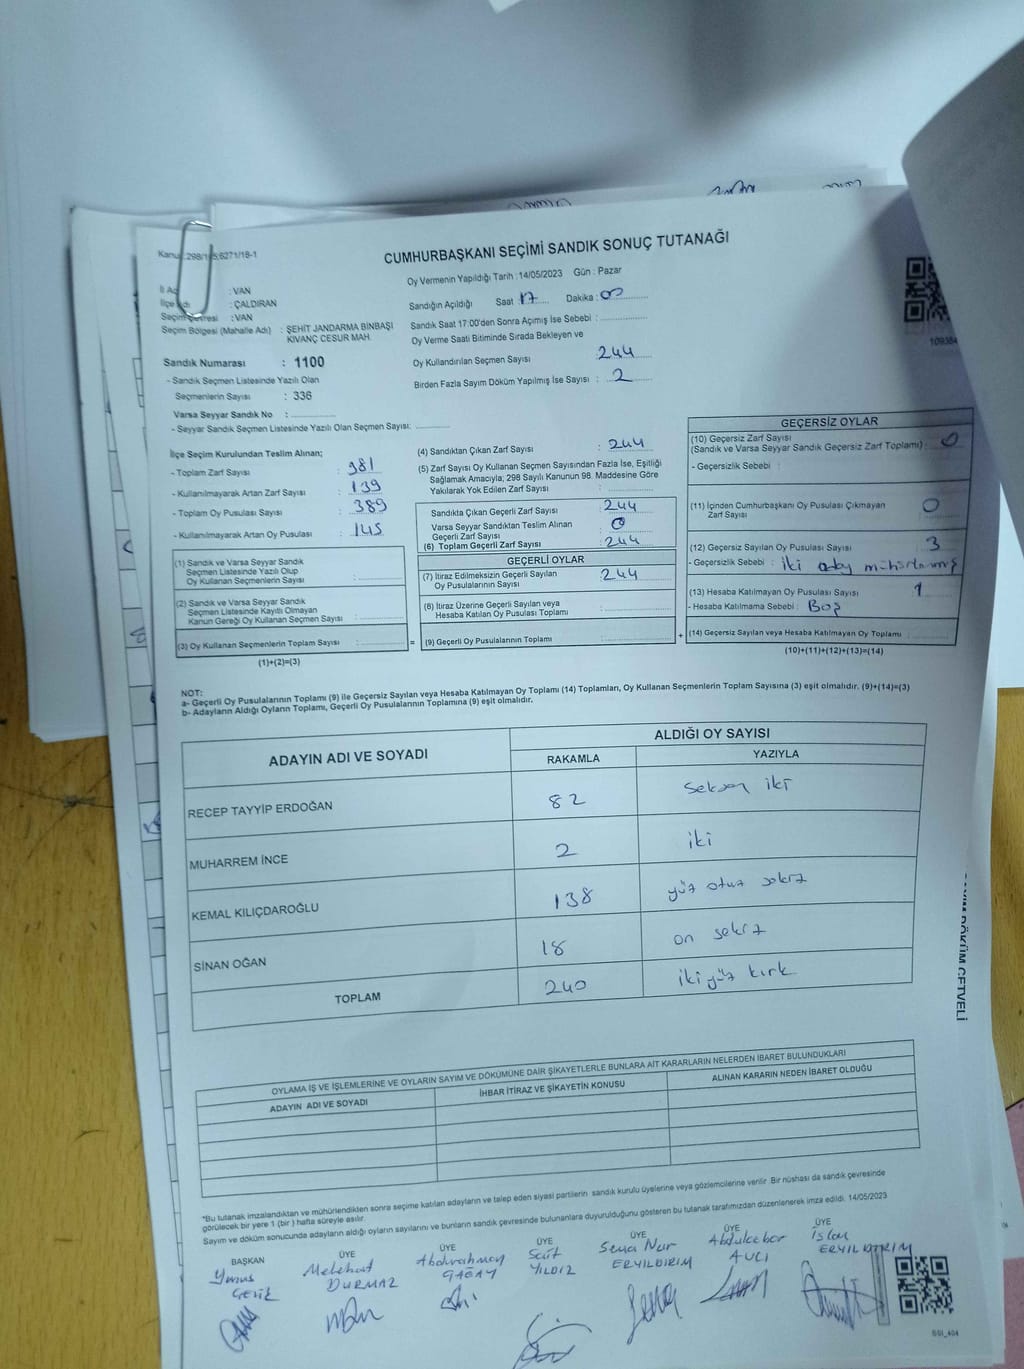 Kanun :298/105;6271/18-1
CUMHURBAŞKANI SEÇİMİ SANDIK SONUÇ TUTANAĞI
İl Adı : VAN
İlçe Adı : ÇALDIRAN
Seçim Çevresi : VAN
Seçim Bölgesi (Mahalle Adı) : ŞEHİT JANDARMA BİNBAŞI
KIVANÇ CESUR MAH.
Sandık Numarası : 1100
- Sandık Seçmen Listesinde Yazılı Olan
Seçmenlerin Sayısı : 336
Varsa Seyyar Sandık No :
- Seyyar Sandık Seçmen Listesinde Yazılı Olan Seçmen Sayısı:
Oy Vermenin Yapıldığı Tarih :14/05/2023 Gün : Pazar
Sandığın Açıldığı Saat 17 Dakika : 00
Sandık Saat 17:00'den Sonra Açımış İse Sebebi :
Oy Verme Saati Bitiminde Sırada Bekleyen ve
Oy Kullandırılan Seçmen Sayısı 244
Birden Fazla Sayım Döküm Yapılmış İse Sayısı : 2
109384
İlçe Seçim Kurulundan Teslim Alınan;
- Toplam Zarf Sayısı : 381
- Kullanılmayarak Artan Zarf Sayısı : 139
- Toplam Oy Pusulası Sayısı : 389
- Kullanılmayarak Artan Oy Pusulası : 145
(1) Sandık ve Varsa Seyyar Sandık
Seçmen Listesinde Yazılı Olup
Oy Kullanan Seçmenlerin Sayısı :
(2) Sandık ve Varsa Seyyar Sandık
Seçmen Listesinde Kayıtlı Olmayan
Kanun Gereği Oy Kullanan Seçmen Sayısı :
(3) Oy Kullanan Seçmenlerin Toplam Sayısı :
(1)+(2)=(3)
=
(4) Sandıktan Çıkan Zarf Sayısı : 244
(5) Zarf Sayısı Oy Kullanan Seçmen Sayısından Fazla İse, Eşitliği
Sağlamak Amacıyla; 298 Sayılı Kanunun 98. Maddesine Göre
Yakılarak Yok Edilen Zarf Sayısı :
Sandıkta Çıkan Geçerli Zarf Sayısı : 244
Varsa Seyyar Sandıktan Teslim Alınan
Geçerli Zarf Sayısı : 0
(6) Toplam Geçerli Zarf Sayısı : 244
GEÇERLİ OYLAR
(7) İtiraz Edilmeksizin Geçerli Sayılan
Oy Pusulalarının Sayısı : 244
(8) İtiraz Üzerine Geçerli Sayılan veya
Hesaba Katılan Oy Pusulası Toplamı :
(9) Geçerli Oy Pusulalarının Toplamı :
+
GEÇERSİZ OYLAR
(10) Geçersiz Zarf Sayısı
(Sandık ve Varsa Seyyar Sandık Geçersiz Zarf Toplamı) : 0
- Geçersizlik Sebebi :
(11) İçinden Cumhurbaşkanı Oy Pusulası Çıkmayan
Zarf Sayısı : 0
(12) Geçersiz Sayılan Oy Pusulası Sayısı : 3
- Geçersizlik Sebebi : iki aday mühürlenmiş
(13) Hesaba Katılmayan Oy Pusulası Sayısı : 1
- Hesaba Katılmama Sebebi : Boş
(14) Geçersiz Sayılan veya Hesaba Katılmayan Oy Toplamı :
(10)+(11)+(12)+(13)=(14)
NOT:
a- Geçerli Oy Pusulalarının Toplamı (9) ile Geçersiz Sayılan veya Hesaba Katılmayan Oy Toplamı (14) Toplamları, Oy Kullanan Seçmenlerin Toplam Sayısına (3) eşit olmalıdır. (9)+(14)=(3)
b- Adayların Aldığı Oyların Toplamı, Geçerli Oy Pusulalarının Toplamına (9) eşit olmalıdır.
ADAYIN ADI VE SOYADI
ALDIĞI OY SAYISI
RAKAMLA YAZIYLA
RECEP TAYYİP ERDOĞAN 82 seksen iki
MUHARREM İNCE 2 iki
KEMAL KILIÇDAROĞLU 138 yüz otuz sekiz
SİNAN OĞAN 18 on sekiz
TOPLAM 240 iki yüz kırk
OYLAMA İŞ VE İŞLEMLERİNE VE OYLARIN SAYIM VE DÖKÜMÜNE DAİR ŞİKAYETLERLE BUNLARA AİT KARARLARIN NELERDEN İBARET BULUNDUKLARI
ADAYIN ADI VE SOYADI İHBAR İTİRAZ VE ŞİKAYETİN KONUSU ALINAN KARARIN NEDEN İBARET OLDUĞU
*Bu tutanak imzalandıktan ve mühürlendikten sonra seçime katılan adayların ve talep eden siyasi partilerin sandık kurulu üyelerine veya gözlemcilerine verilir. Bir nüshası da sandık çevresinde
görülecek bir yere 1 (bir) hafta süreyle asılır.
Sayım ve döküm sonucunda adayların aldığı oyların sayılarını ve bunların sandık çevresinde bulunanlara duyurulduğunu gösteren bu tutanak tarafımızdan düzenlenerek imza edildi. 14/05/2023
BAŞKAN ÜYE ÜYE ÜYE ÜYE ÜYE ÜYE
Yunus Melehat Abdurrahman Sait Sena Nur Abdulcebar İslam
DURMAZ YILDIZ ERYILDIRIM AVCI ERYILDIRIM
SSI_404
SAYIM DÖKÜM CETVELİ